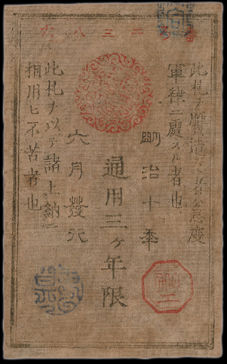 二三八六
此札ヲ贋造スル者ハ急度
軍律ニ處スル者也
明治十年
通用三ヶ年限
六月發行
此札ヲ以テ諸上納ニ
相用ヒ不苦者也